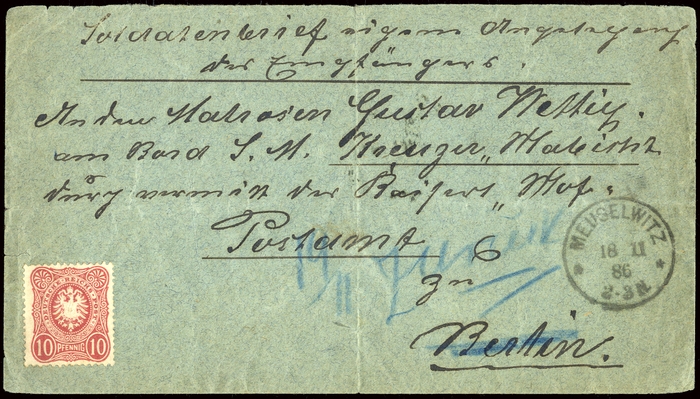 Soldatenbrief eigene Angelegenh
des Empfängers.
An den Matrosen Gustav Wettig.
am Bord S. M. Kreuzer „Habicht
durg vermitt der Kaiserl „Hof-
Postamt
zu
Berlin.
19/11 Zurück
MEUSELWITZ
18 11
86
2-3N.
DEUTSCHE REICHS-POST
10 PFENNIG 10